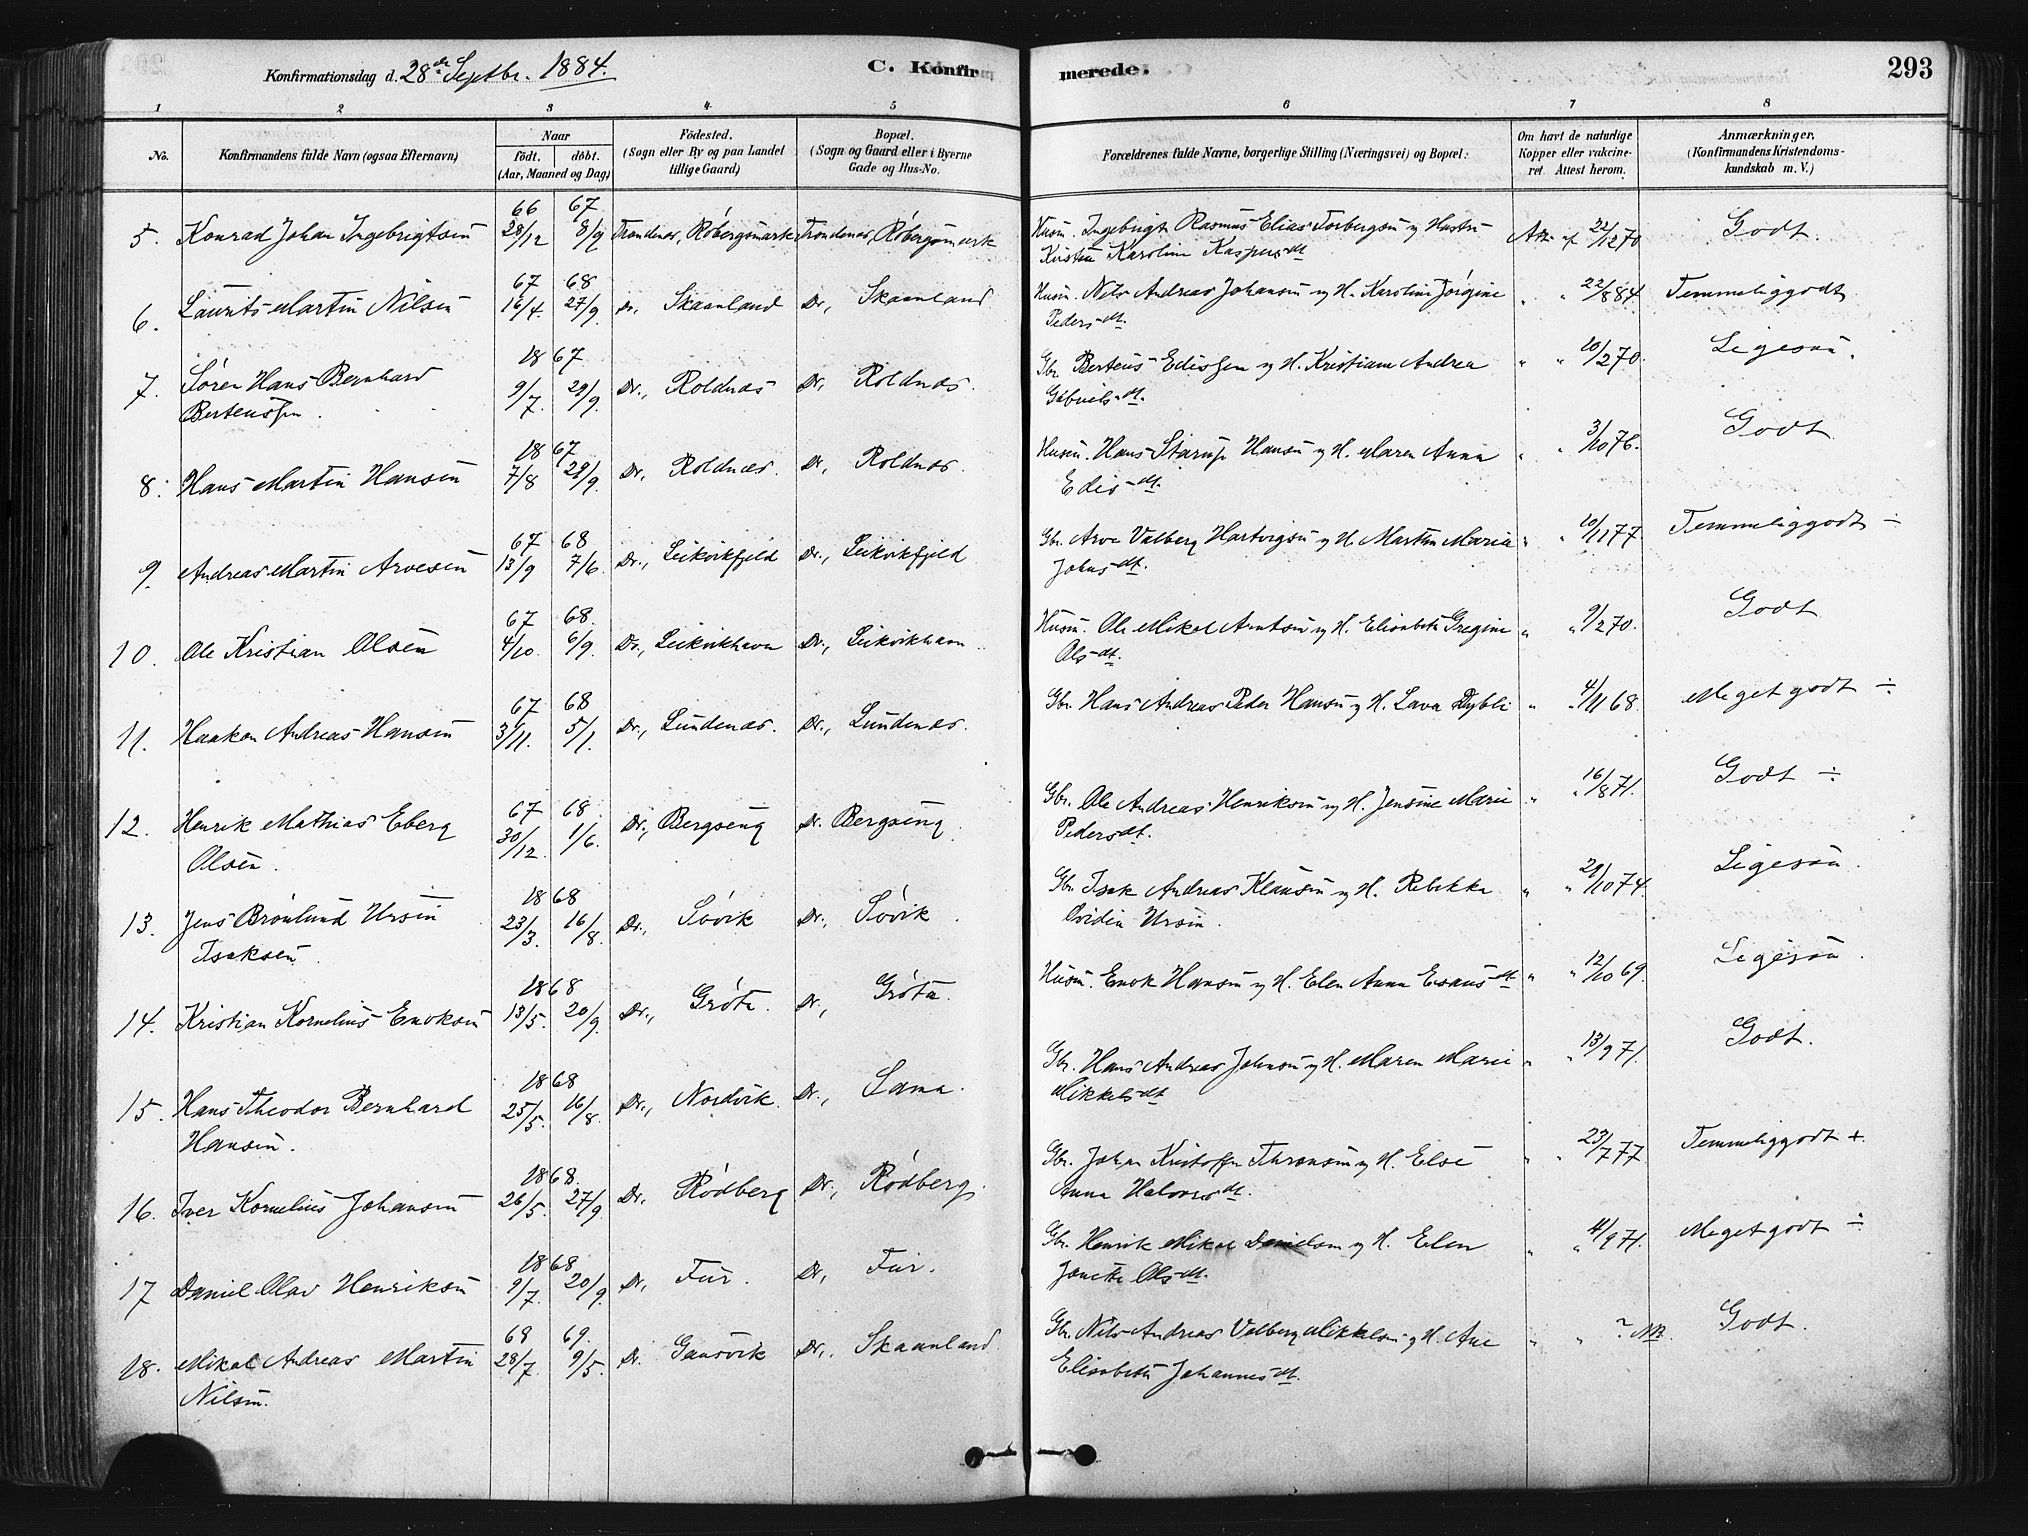 Konfirmationsdag d. 28de Septbr. 1884.
C. Konfirmerede.
293
1 2 3 4 5 6 7 8
No.
Konfirmandens fulde Navn (ogsaa Efternavn)
Naar
födt. döbt.
(Aar, Maaned og Dag)
Födested.
(Sogn eller By og paa Landet
tillige Gaard)
Bopæl.
(Sogn og Gaard eller i Byerne
Gade og Hus-No.
Forældrenes fulde Navne, borgerlige Stilling (Næringsvei) og Bopæl:
Om havt de naturlige
Kopper eller vakcine-
ret. Attest herom.
Anmærkninger.
(Konfirmandens Kristendoms-
kundskab m. V.)
66 67
5. Konrad Johan Ingebrigtsen 28/12 8/9 Trondenes, Röbergsmark Trondenes, Röbergsmark Husm. Ingebrigt Rasmus Elias Torbergsen og Hustru Att. af 22/12 70 Godt.
Kristine Karoline Kaspersdt.
67 68
6. Laurits Martin Nilsen 16/4. 27/9. Do., Skaanland Do., Skaanland Husm. Nils Andreas Johansen og H. Karoline Jörgine " " 22/8 84. Temmeliggodt
Pedersdt.
18 67
7. Sören Hans Bernhard 9/7. 29/9. Do., Roldnæs Do., Roldnæs Gbr. Berteus Edissen og H. Kristiane Andrea " " 10/2 70. Ligesaa.
Berteussen. Gabrielsdt.
18 67
8. Hans Martin Hansen 7/8 29/9. Do., Roldnæs. Do., Roldnæs. Husm. Hans Starup Hansen og H. Maren Anna " " 3/10 76. Godt
Edisdt.
67 68
9. Andreas Martin Arvesen 13/9 7/6. Do., Leikvikfjeld Do., Leikvikfjeld Gbr. Arve Valberg Hartvigsen og H. Martine Maria " " 10/11 77 Temmeliggodt ÷
Johnsdt.
67 68.
10. Ole Kristian Olsen 4/10. 6/9. Do., Leikvikhavn Do., Leikvikhavn Husm. Ole Mikal Arntsen og H. Elisabeth Gregine " " 9/2 70. Godt
Olsdt.
67 68
11. Haakon Andreas Hansen 3/11. 5/1. Do., Lundenes. Do., Lundenes. Gbr. Hans Andreas Peder Hansen og H. Lava Dybli " " 4/11 68. Meget godt ÷
67 68
12. Henrik Mathias Eberg 30/12. 1/6. Do., Bergseng Do. Bergseng. Gbr. Ole Andreas Henriksen og H. Jensine Marie " " 16/8 71. Godt ÷
Olsen. Pedersdt.
18 68
13. Jens Brönlund Ursin 23/3. 16/8. Do., Sövik Do., Sövik. Gbr. Isak Andreas Klausen og H. Rebekka " " 29/10 74. Ligesaa.
Isaksen. Ovidia Ursin.
18 68
14. Kristian Kornelius Enoksen 13/5. 20/9. Do., Gröta. Do., Gröta. Husm. Enok Hansen og H. Elen Anna Esausdt " " 12/10 69. Ligesaa.
18 68
15. Hans Theodor Bernhard 25/5. 16/8. Do., Nordvik. Do., Sama. Gbr. Hans Andreas Johnsen og H. Maren Marie " " 13/9 71. Godt.
Hansen. Mikkelsdt
18 68.
16. Iver Kornelius Johansen 26/5. 27/9. Do. Rödberg Do., Rödberg. Gbr. Johan Kristoffer Thronsen og H. Else " " 23/7 77. Temmeliggodt +.
Anna Halvorsdt.
18 68
17 Daniel Olav Henriksen 9/7. 20/9. Do, Fur. Do, Fur. Gbr. Henrik Mikal Danielsen og H. Elen " " 4/9 71. Meget godt ÷
Janette Olsdt.
68 69.
18. Mikal Andreas Martin 28/7. 9/5. Do. Gausvik Do., Skaanland. Gbr. Nils Andreas Valberg Mikkelsen og H. Ane " " ? NB. Godt.
Nilsen. Elisabeth Johannesdt.